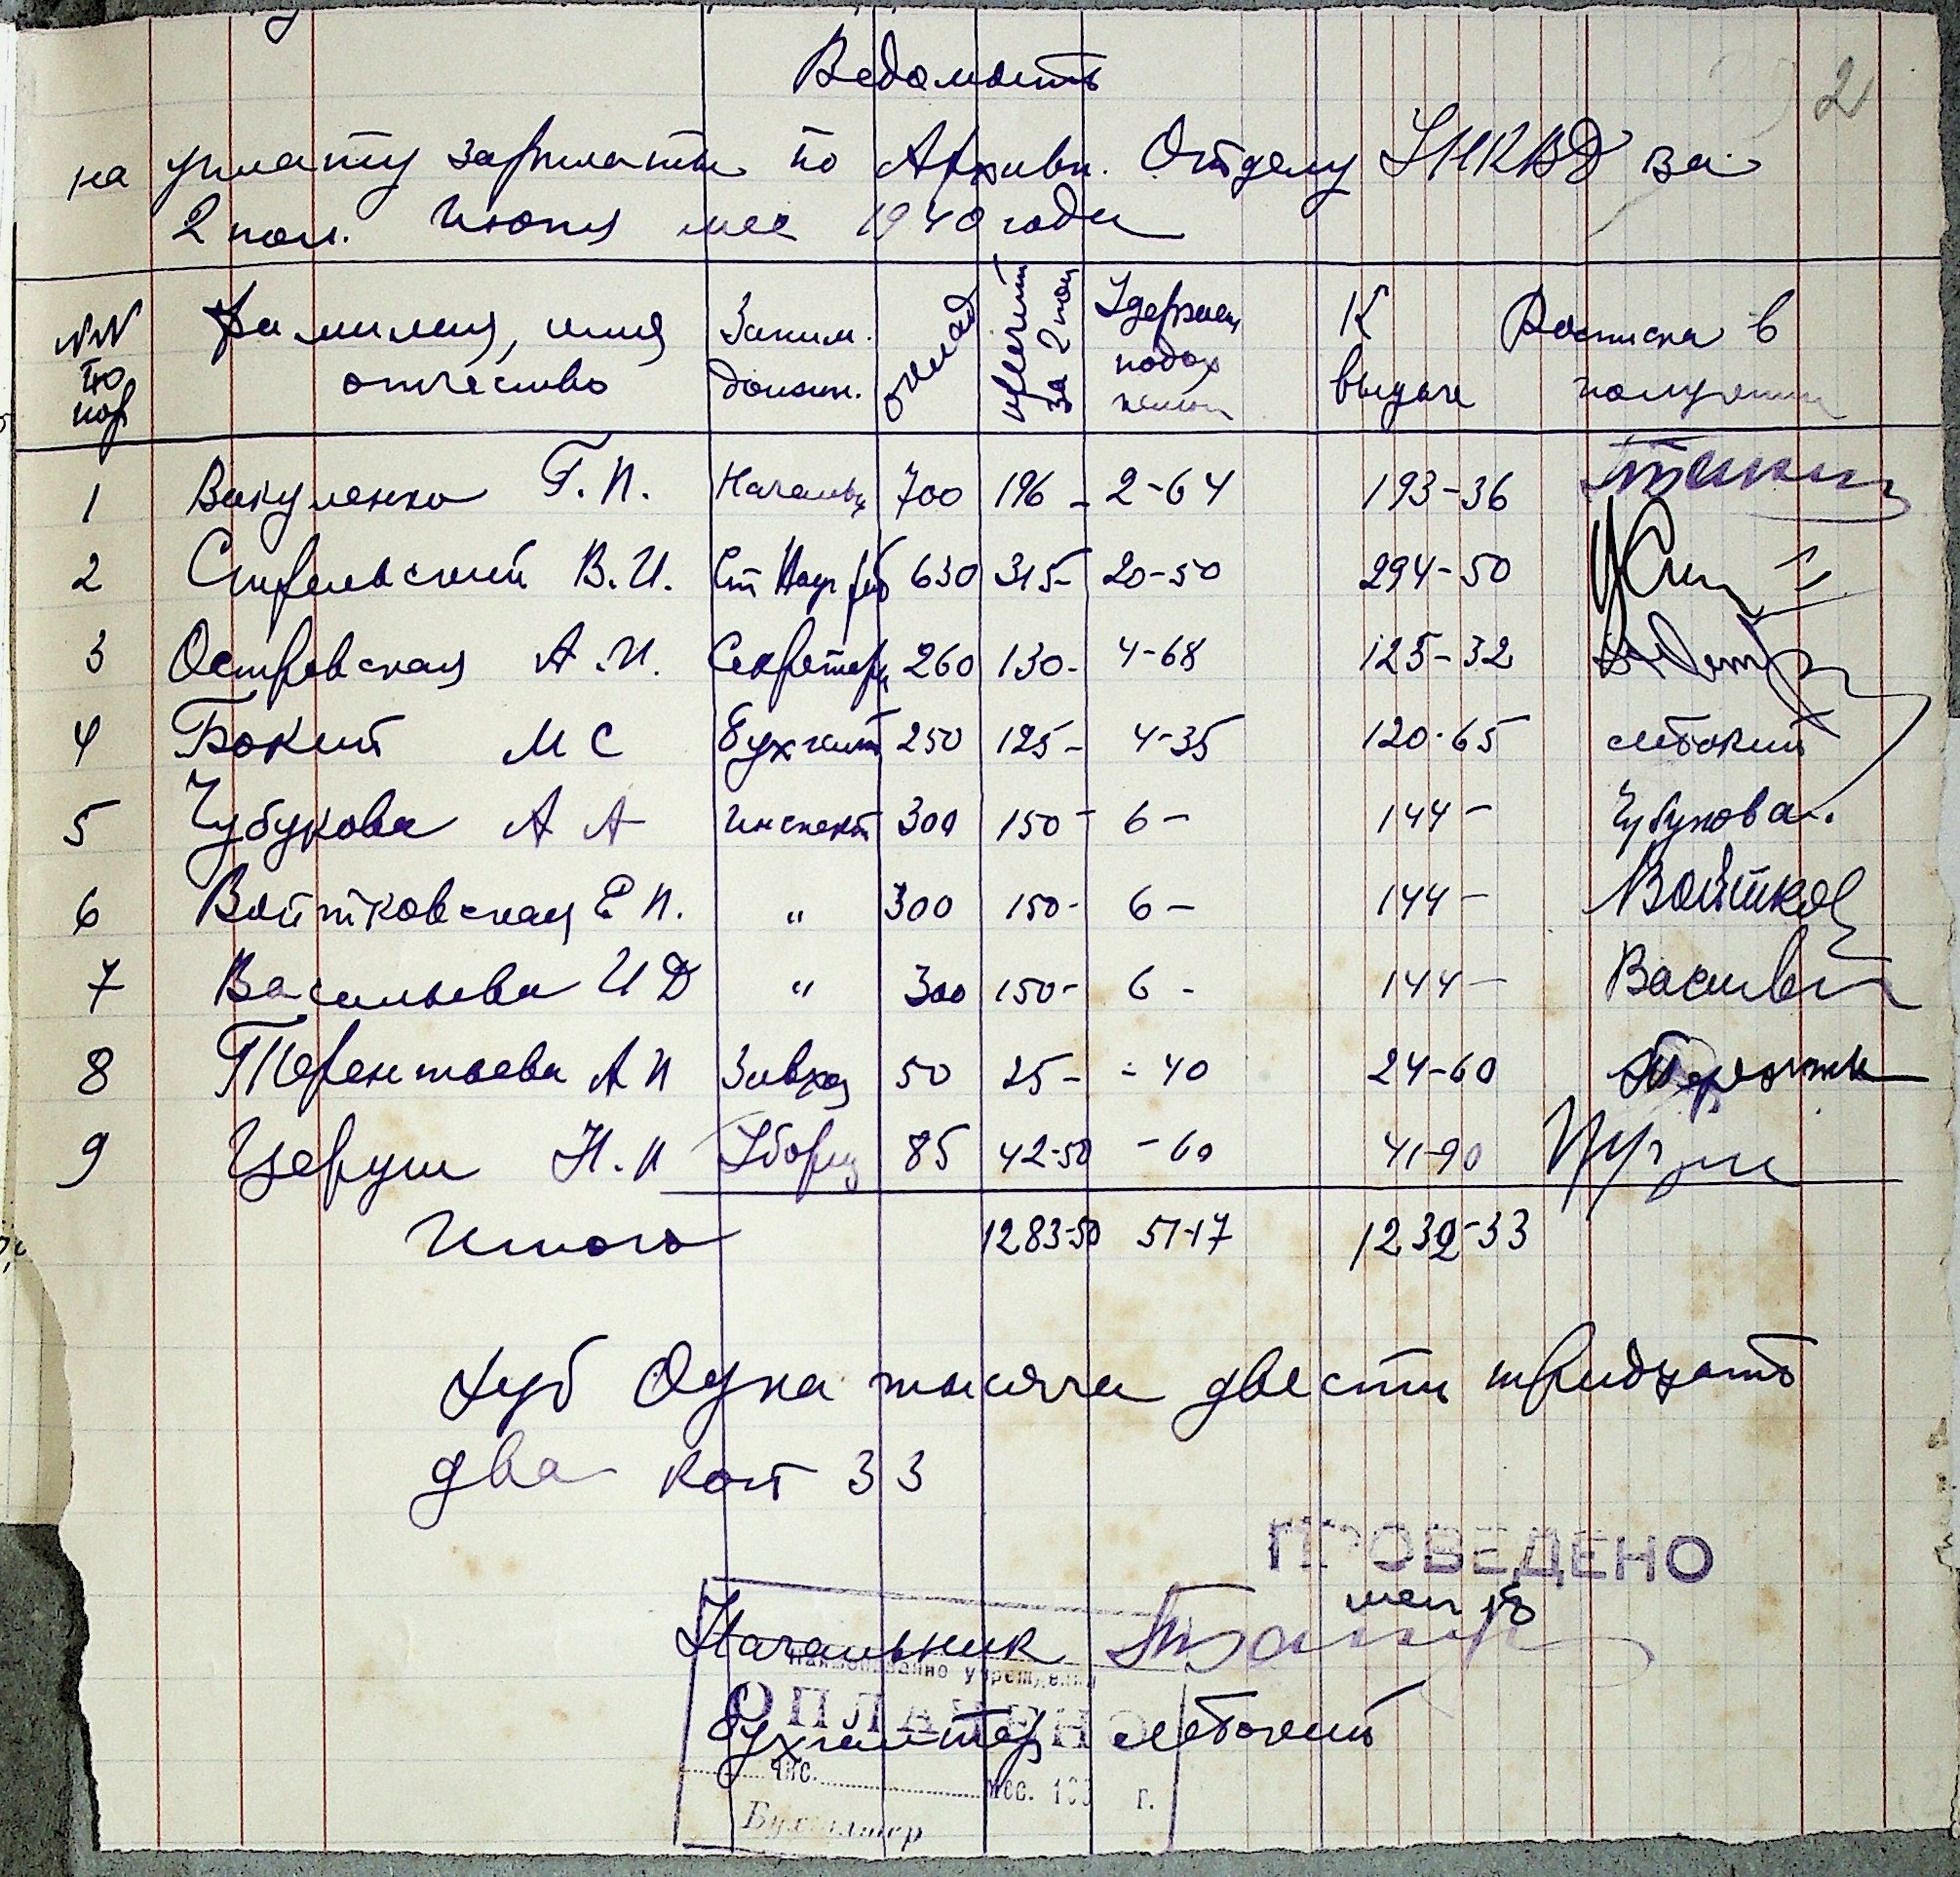 2
Ведомость
на уплату зарплаты по Архивн. Отделу УНКВД за
2 пол. июня м-ца 1940 года
NN по пор | Фамилия, имя отчество | Заним. должн. | оклад | причит за 2 пол | Удержан подох | К выдаче | Расписка в получении
1 Вакуленко Г.П. Начальн 700 196 - 2-64 193-36
2 Стрельский В.И. Ст Науч раб 630 315- 20-50 294-50
3 Островская А.И. Секретарь 260 130- 4-68 125-32
4 Бокий М С Бухгалт 250 125- 4-35 120-65 МБокий
5 Чубукова А А Инспект 300 150- 6- 144- Чубукова.
6 Войтковская Е П. " 300 150- 6- 144- Войтков
7 Васильева И Д " 300 150- 6- 144-
8 Терентьева А П Завхоз 50 25- -40 24-60
9 Церуш Н.И Уборщ 85 42-50 -60 41-90
Итого 1283-50 51-17 1232-33
Руб Одна тысяча двести тридцать
два коп 33
ПРОВЕДЕНО
Начальник
Наименование учреждения
ОПЛАЧЕНО
Бухгалтер МБокий
чис. мес. 193 г.
Бухгалтер